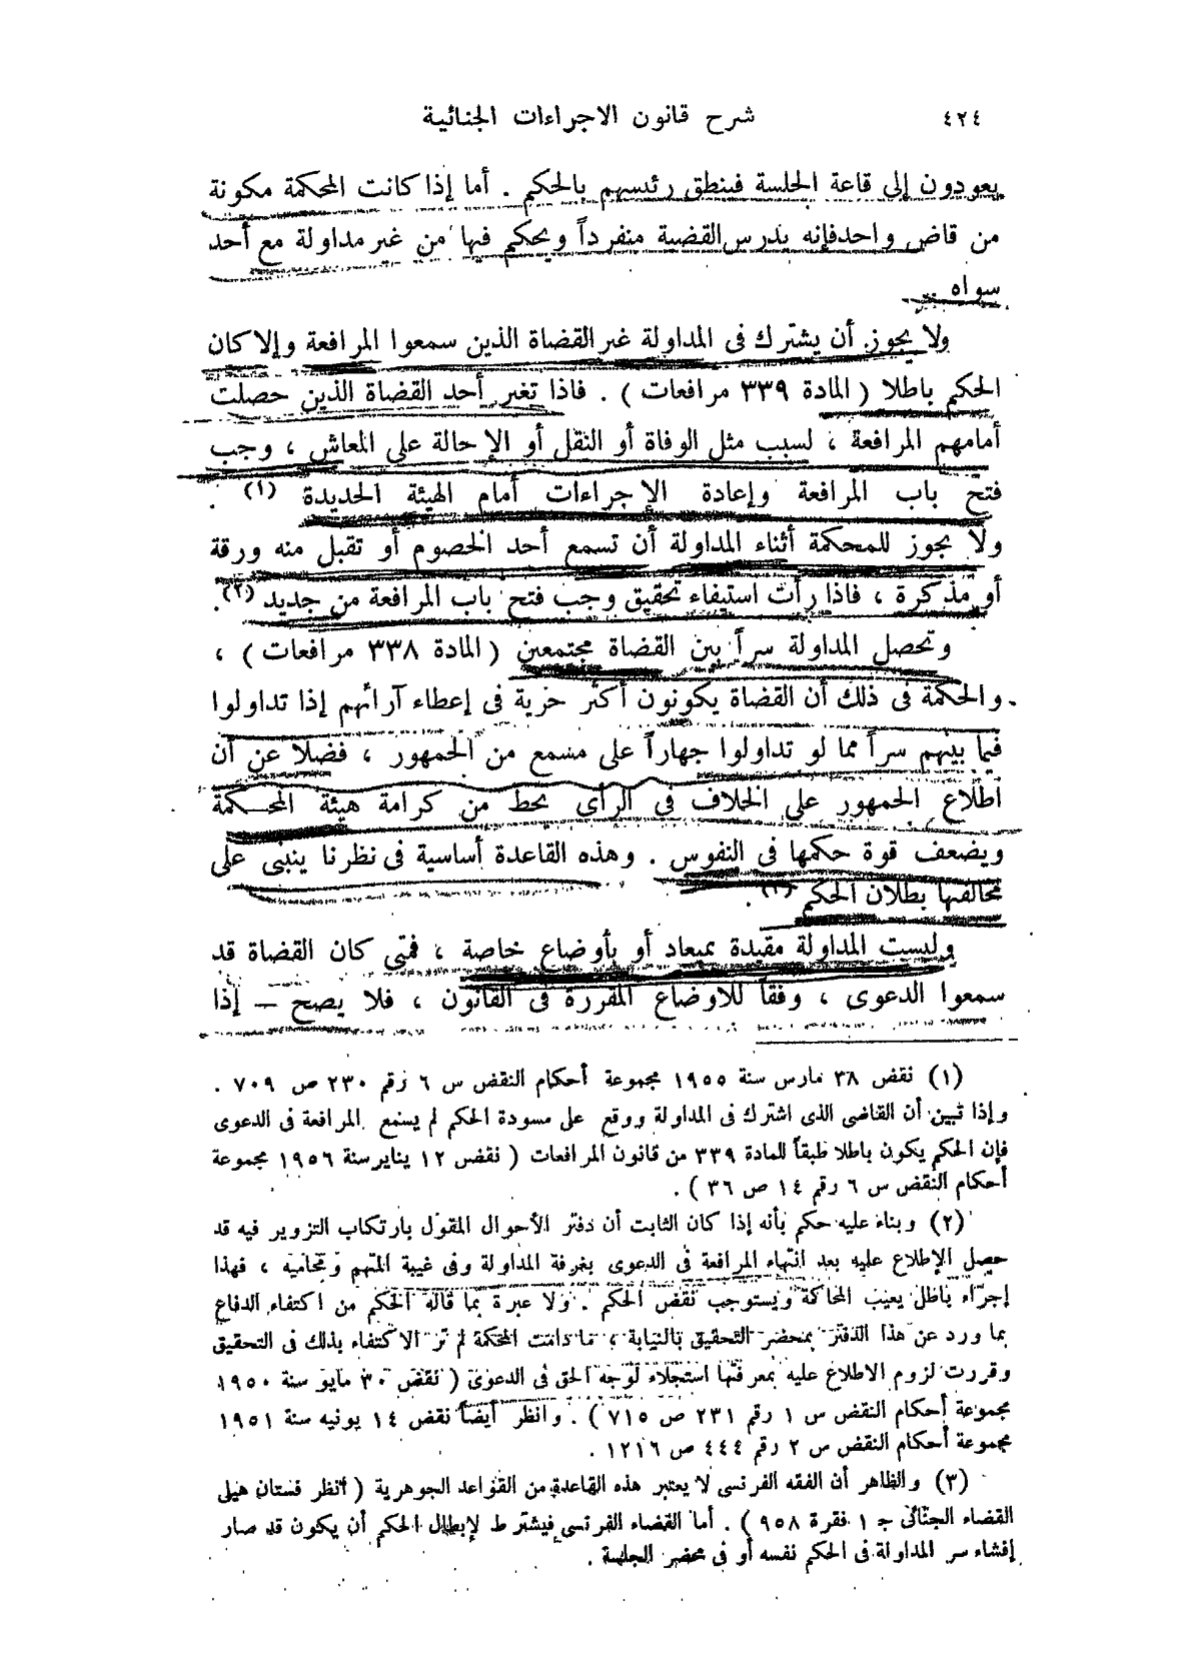 ٤٢٤
شرح قانون الاجراءات الجنائية
يعودون إلى قاعة الجلسة فينطق رئيسهم بالحكم . أما إذا كانت المحكمة مكونة
من قاض واحد فإنه يدرس القضية منفرداً ويحكم فيها من غير مداولة مع أحد
سواه .
ولا يجوز أن يشترك فى المداولة غير القضاة الذين سمعوا المرافعة وإلا كان
الحكم باطلا ( المادة ٣٣٩ مرافعات ) . فاذا تغير أحد القضاة الذين حصلت
أمامهم المرافعة ، لسبب مثل الوفاة أو النقل أو الإحالة على المعاش ، وجب
فتح باب المرافعة وإعادة الإجراءات أمام الهيئة الجديدة (١) .
ولا يجوز للمحكمة أثناء المداولة أن تسمع أحد الخصوم أو تقبل منه ورقة
أو مذكرة ، فاذا رأت استيفاء تحقيق وجب فتح باب المرافعة من جديد (٢) .
وتحصل المداولة سراً بين القضاة مجتمعين ( المادة ٣٣٨ مرافعات ) ،
والحكمة فى ذلك أن القضاة يكونون أكثر حرية فى إعطاء آرائهم إذا تداولوا
فيما بينهم سراً مما لو تداولوا جهاراً على مسمع من الجمهور ، فضلا عن أن
اطلاع الجمهور على الخلاف فى الرأى يحط من كرامة هيئة المحكمة
ويضعف قوة حكمها فى النفوس . وهذه القاعدة أساسية فى نظرنا ينبنى على
مخالفتها بطلان الحكم (٣) .
وليست المداولة مقيدة بميعاد أو بأوضاع خاصة ، فمتى كان القضاة قد
سمعوا الدعوى ، وفقاً للأوضاع المقررة فى القانون ، فلا يصح — إذا
(١) نقض ٣٨ مارس سنة ١٩٥٥ مجموعة أحكام النقض س ٦ رقم ٢٣٠ ص ٧٠٩ .
وإذا تبين أن القاضى الذى اشترك فى المداولة ووقع على مسودة الحكم لم يسمع المرافعة فى الدعوى
فإن الحكم يكون باطلا طبقاً للمادة ٣٣٩ من قانون المرافعات ( نقض ١٢ يناير سنة ١٩٥٦ مجموعة
أحكام النقض س ٦ رقم ١٤ ص ٣٦ ) .
(٢) وبناء عليه حكم بأنه إذا كان الثابت أن دفتر الأحوال المقول بارتكاب التزوير فيه قد
حصل الإطلاع عليه بعد انتهاء المرافعة فى الدعوى بغرفة المداولة وفى غيبة المتهم ومحاميه ، فهذا
إجراء باطل يعيب المحاكمة ويستوجب نقض الحكم . ولا عبرة بما قاله الحكم من اكتفاء الدفاع
بما ورد عن هذا الدفتر بمحضر التحقيق بالنيابة ، ما دامت المحكمة لم تر الاكتفاء بذلك فى التحقيق
وقررت لزوم الاطلاع عليه بمعرفتها استجلاء لوجه الحق فى الدعوى ( نقض ٣٠ مايو سنة ١٩٥٠
مجموعة أحكام النقض س ١ رقم ٢٣١ ص ٧١٥ ) . وانظر أيضاً نقض ١٤ يونيه سنة ١٩٥١
مجموعة أحكام النقض س ٢ رقم ٤٤٤ ص ١٢١٦ .
(٣) والظاهر أن الفقه الفرنسى لا يعتبر هذه القاعدة من القواعد الجوهرية ( أنظر فستان هيلى
القضاء الجنائى ج ١ فقرة ٩٥٨ ) . أما القضاء الفرنسى فيشترط لإبطال الحكم أن يكون قد صار
إفشاء سر المداولة فى الحكم نفسه أو فى محضر الجلسة .